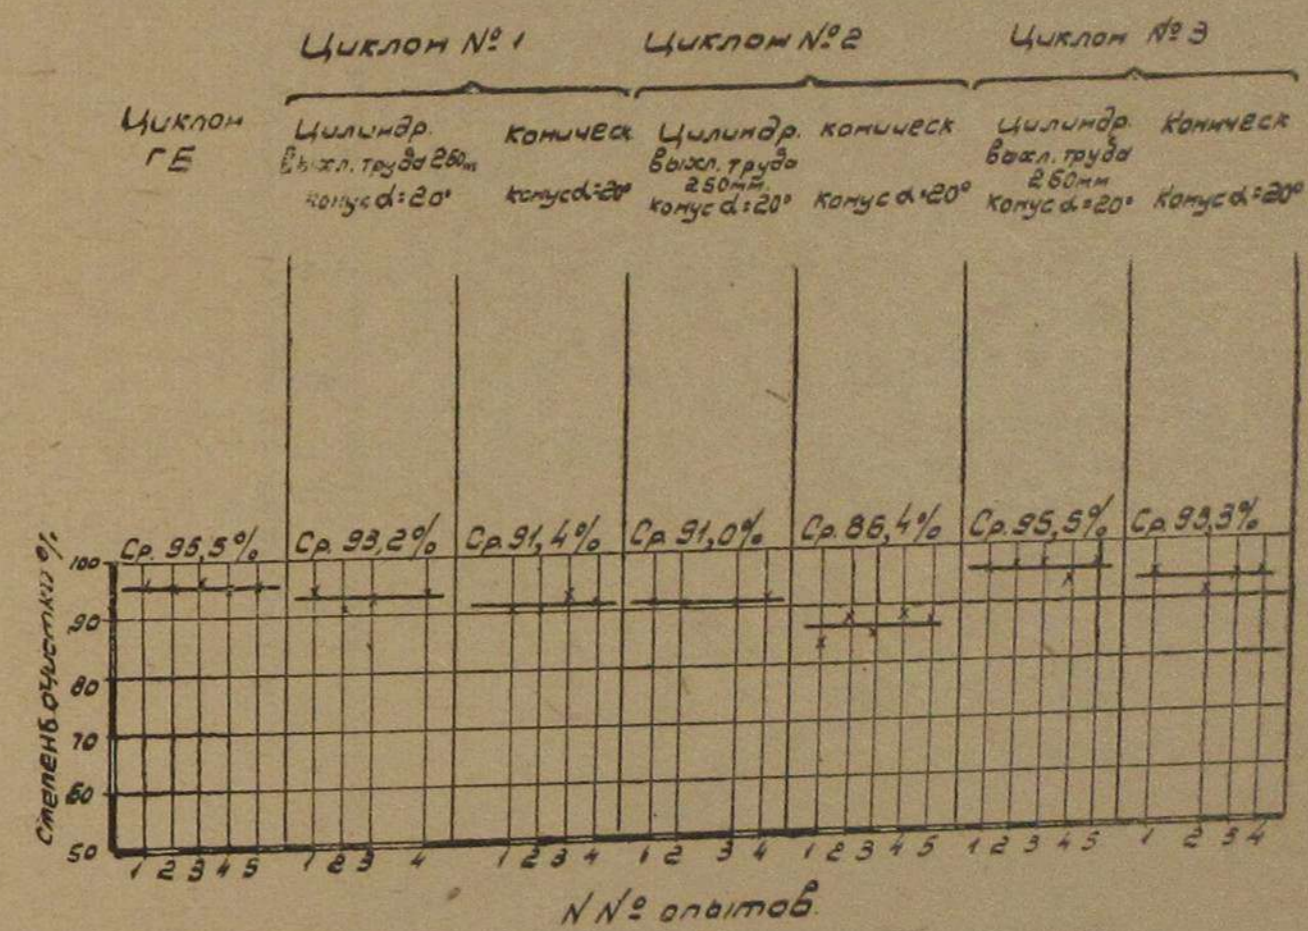 Циклон № 1
Циклон № 2
Циклон № 3
Циклон
ГБ
Цилиндр.
Выхл. труба 260мм
конус α=20°
коническ
конус α=20°
Цилиндр.
Выхл. труба
250мм.
конус α=20°
коническ
конус α=20°
Цилиндр.
Выхл. труба
260мм
конус α=20°
коническ
конус α=20°
Ср. 95,5%
Ср. 93,2%
Ср. 91,4%
Ср. 91,0%
Ср. 86,4%
Ср. 95,5%
Ср. 93,3%
Степень очистки %
100
90
80
70
60
50
1 2 3 4 5
1 2 3 4
1 2 3 4
1 2 3 4
1 2 3 4 5
1 2 3 4 5
1 2 3 4
N № опытов.